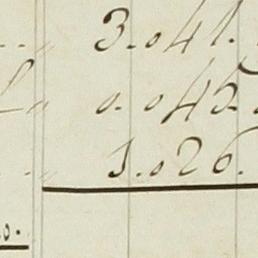 3.041.
0.045.
3.026.